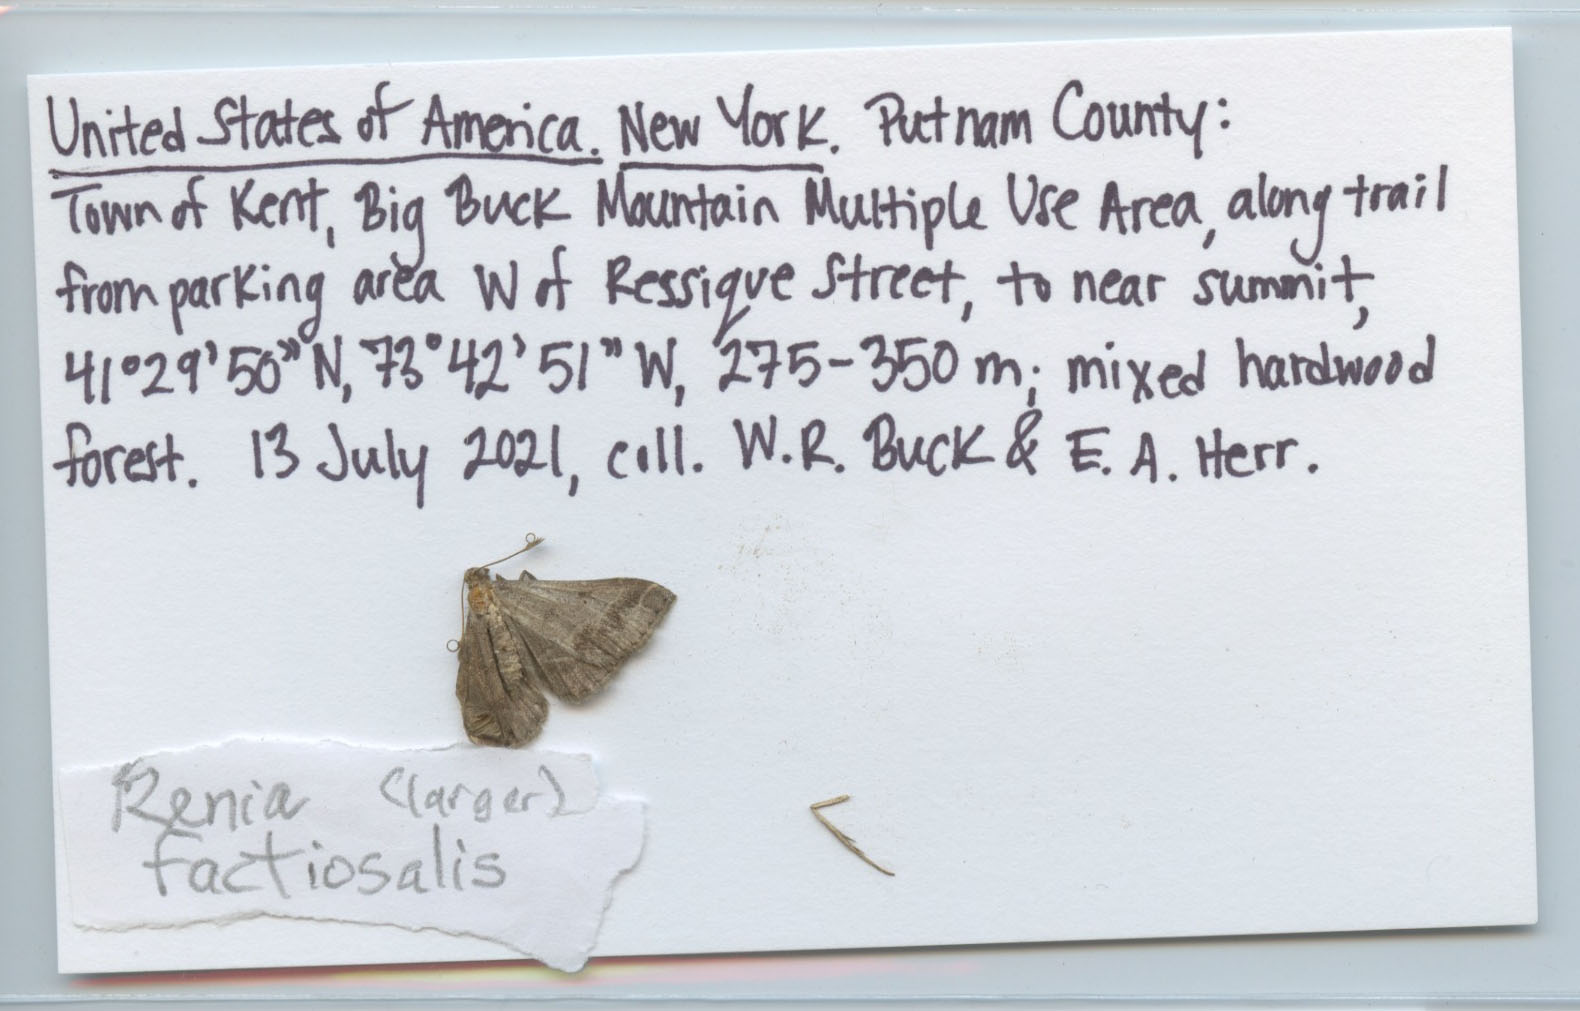 United States of America. New York. Putnam County:
Town of Kent, Big Buck Mountain Multiple Use Area, along trail
from parking area W of Ressique Street, to near summit,
41°29'50"N, 73°42'51"W, 275-350 m; mixed hardwood
forest. 13 July 2021, coll. W.R. Buck & E. A. Herr.
Renia (larger)
factiosalis